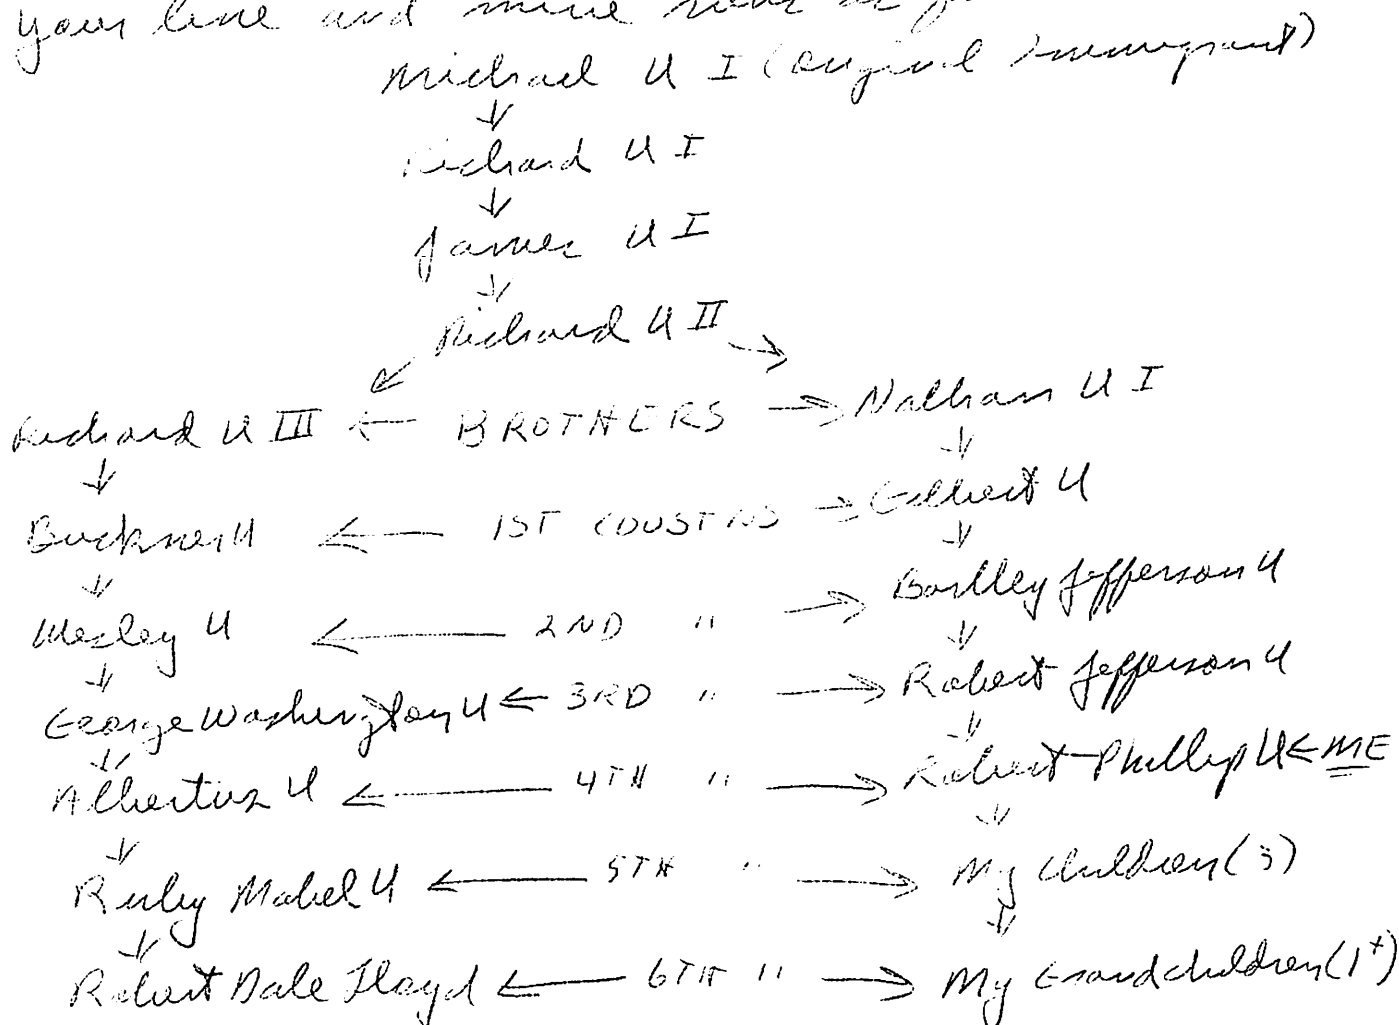 your line and mine runs as
Michael U I (Original Immigrant)
↓
Richard U I
↓
James U I
↓
Richard U II
↙ ↘
Richard U III ← BROTHERS → Nathan U I
↓ ↓
Buckner U ← 1ST COUSINS → Gilbert U
↓ ↓
Wesley U ← 2ND " → Bartley Jefferson U
↓ ↓
George Washington U ← 3RD " → Robert Jefferson U
↓ ↓
Albertus U ← 4TH " → Robert Phillip U ← ME
↓ ↓
Ruby Mabel U ← 5TH " → My children (3)
↓ ↓
Robert Dale Floyd ← 6TH " → My Grandchildren (1+)